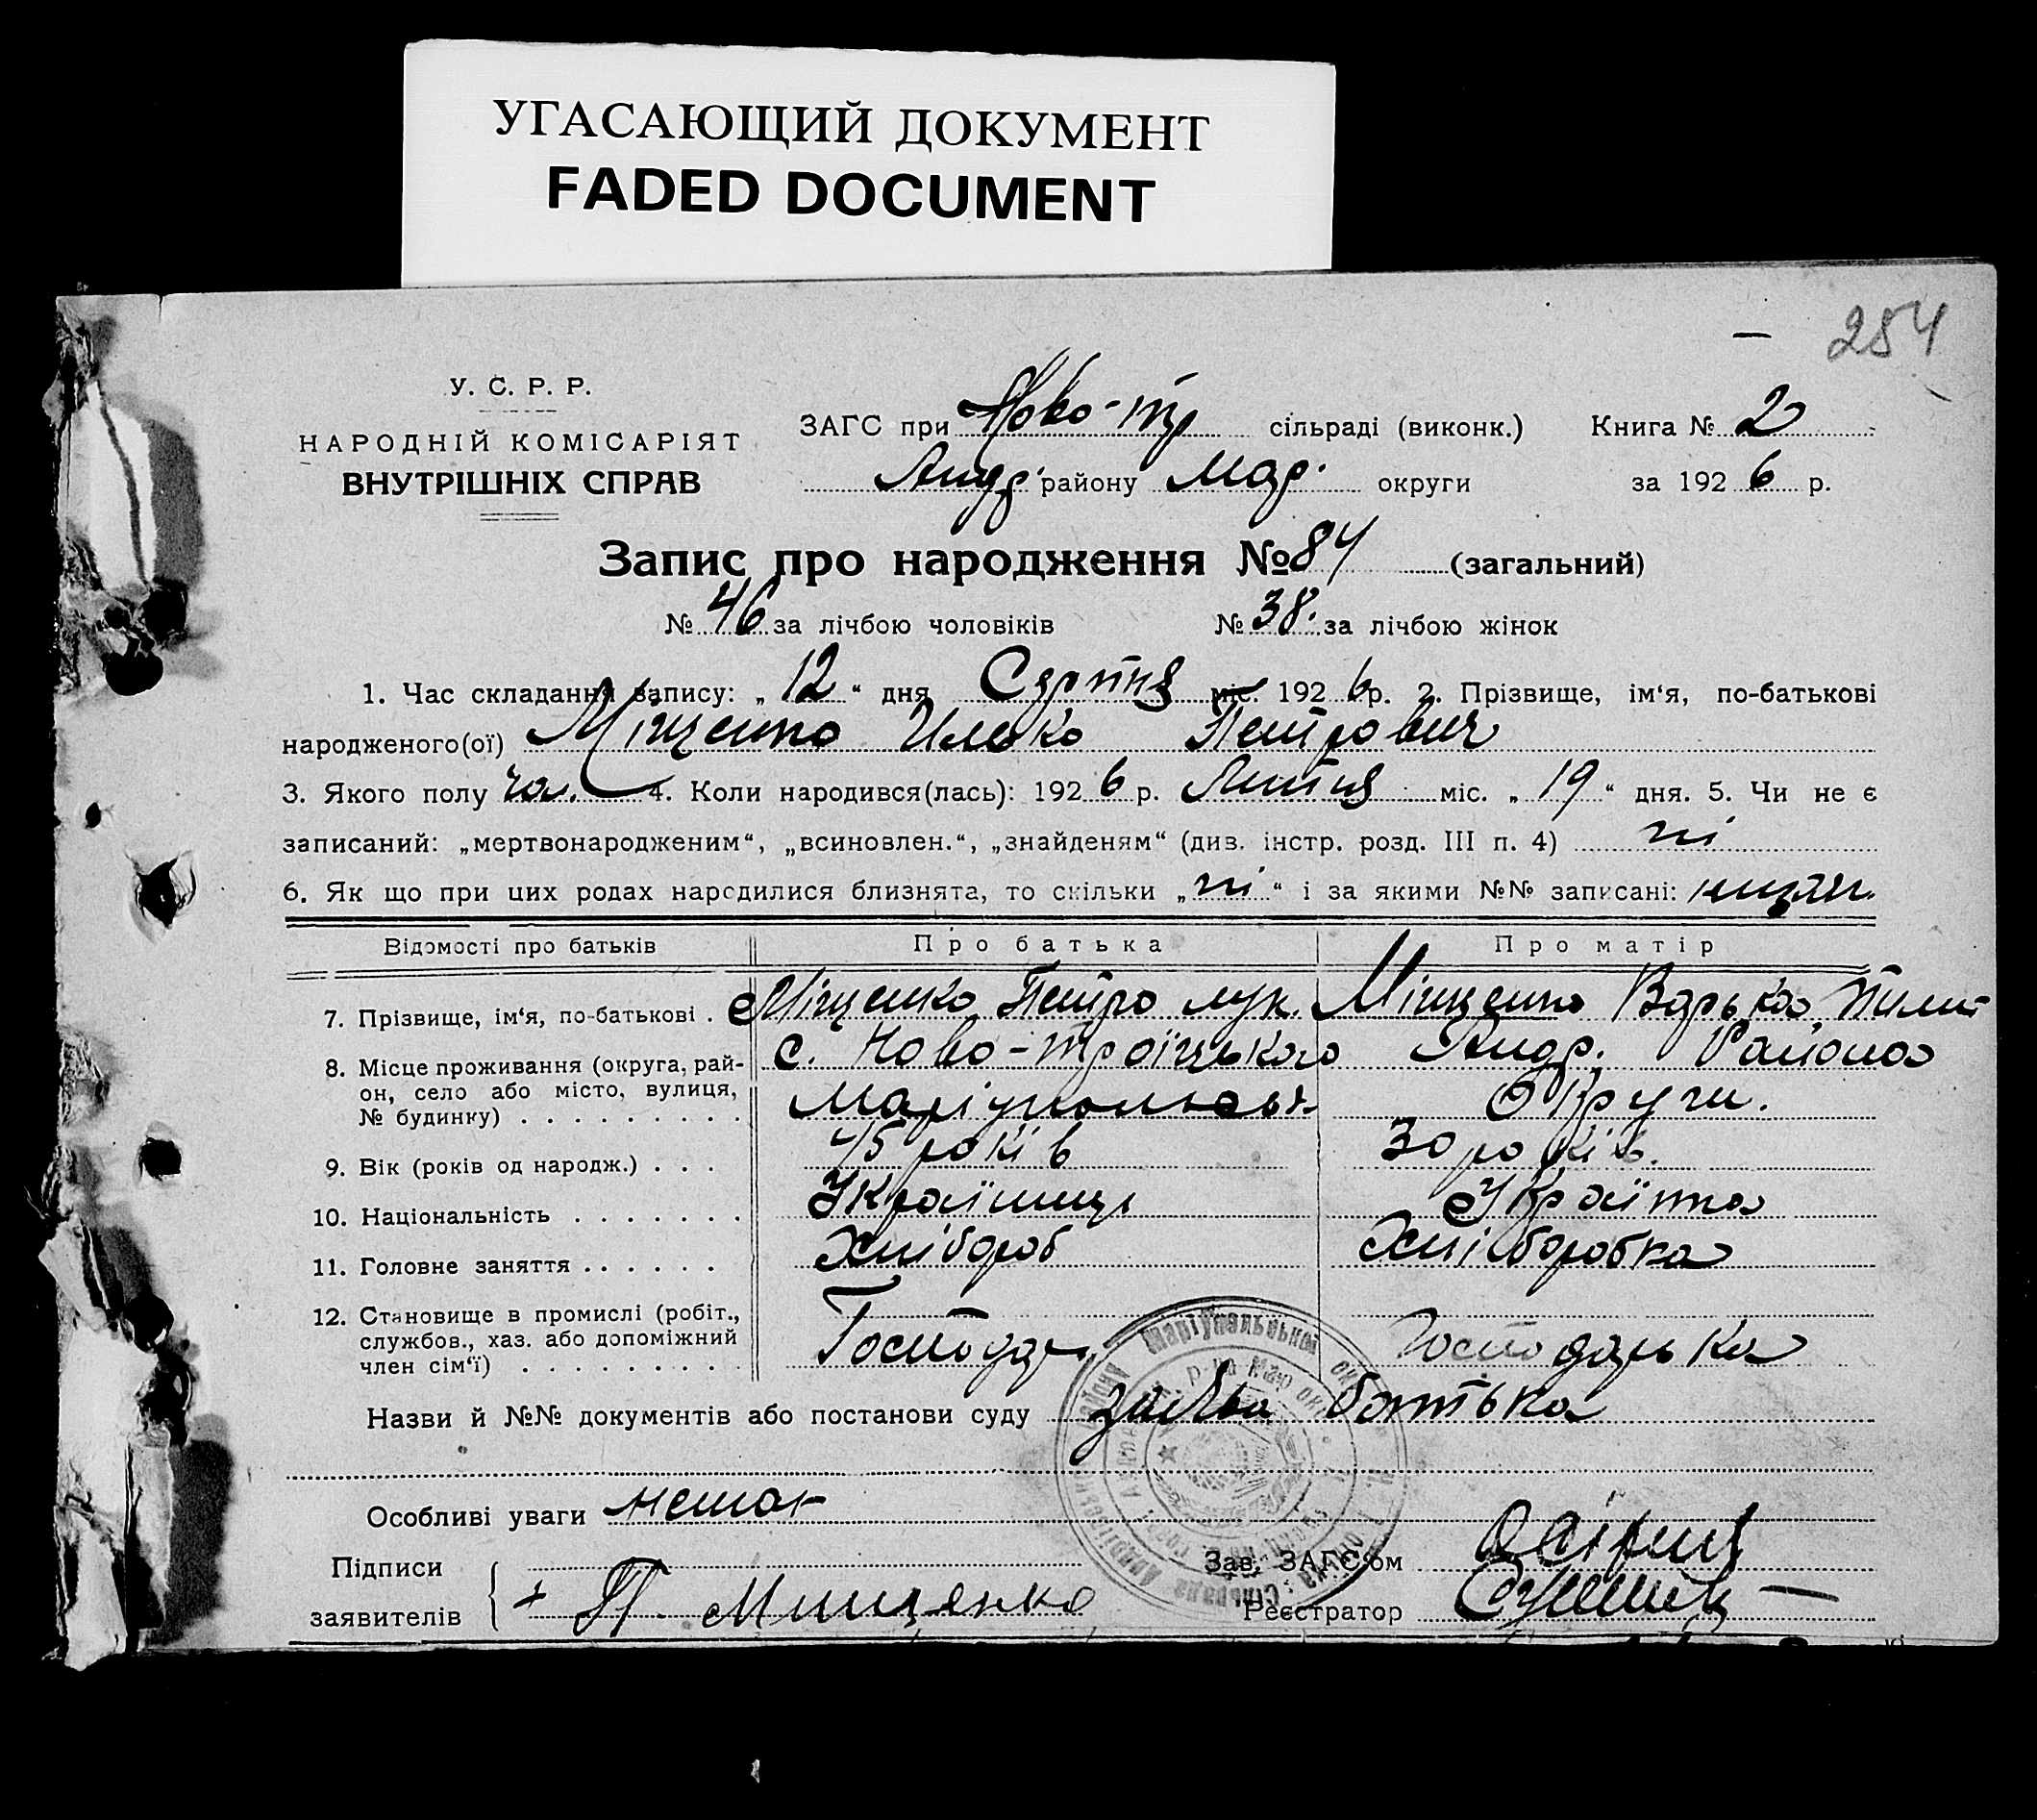 УГАСАЮЩИЙ ДОКУМЕНТ
FADED DOCUMENT
254
У. С. Р. Р.
НАРОДНІЙ КОМІСАРІЯТ
ВНУТРІШНІХ СПРАВ
ЗАГС при Ново-тр сільраді (виконк.) Книга № 2
Андр. району Мар. округи за 1926 р.
Запис про народження № 84 (загальний)
№ 46 за лічбою чоловіків № 38. за лічбою жінок
1. Час складання запису: „ 12 “ дня Серпня міс. 1926 р. 2. Прізвище, ім‘я, по-батькові
народженого(ої) Міщенко Илько Петрович
3. Якого полу чол. 4. Коли народився(лась): 1926 р. Липця міс. „ 19 “ дня. 5. Чи не є
записаний: „мертвонародженим“, „всиновлен.“, „знайденям“ (див. інстр. розд. III п. 4) ні
6. Як що при цих родах народилися близнята, то скільки „ ні “ і за якими №№ записані:
Відомості про батьків Про батька Про матір
7. Прізвище, ім‘я, по-батькові . Міщенко Петро лук. Міщенко Варька
8. Місце проживання (округа, рай- с. Ново-Троїцького Андр. Района
он, село або місто, вулиця, Маріупольськ Округи.
№ будинку) . . . . . . . . .
9. Вік (років од народж.) . . . 45 років 30 років.
10. Національність . . . . . . . Українець Українка
11. Головне заняття . . . . . . Хлібороб Хліборобка
12. Становище в промислі (робіт.,
службов., хаз. або допоміжний Господар Господарька
член сім‘ї) . . . . . . . . .
Назви й №№ документів або постанови суду заява батька
Особливі уваги немає
Підписи Зав. ЗАГС‘ом
заявителів + П. Мищенко Реєстратор